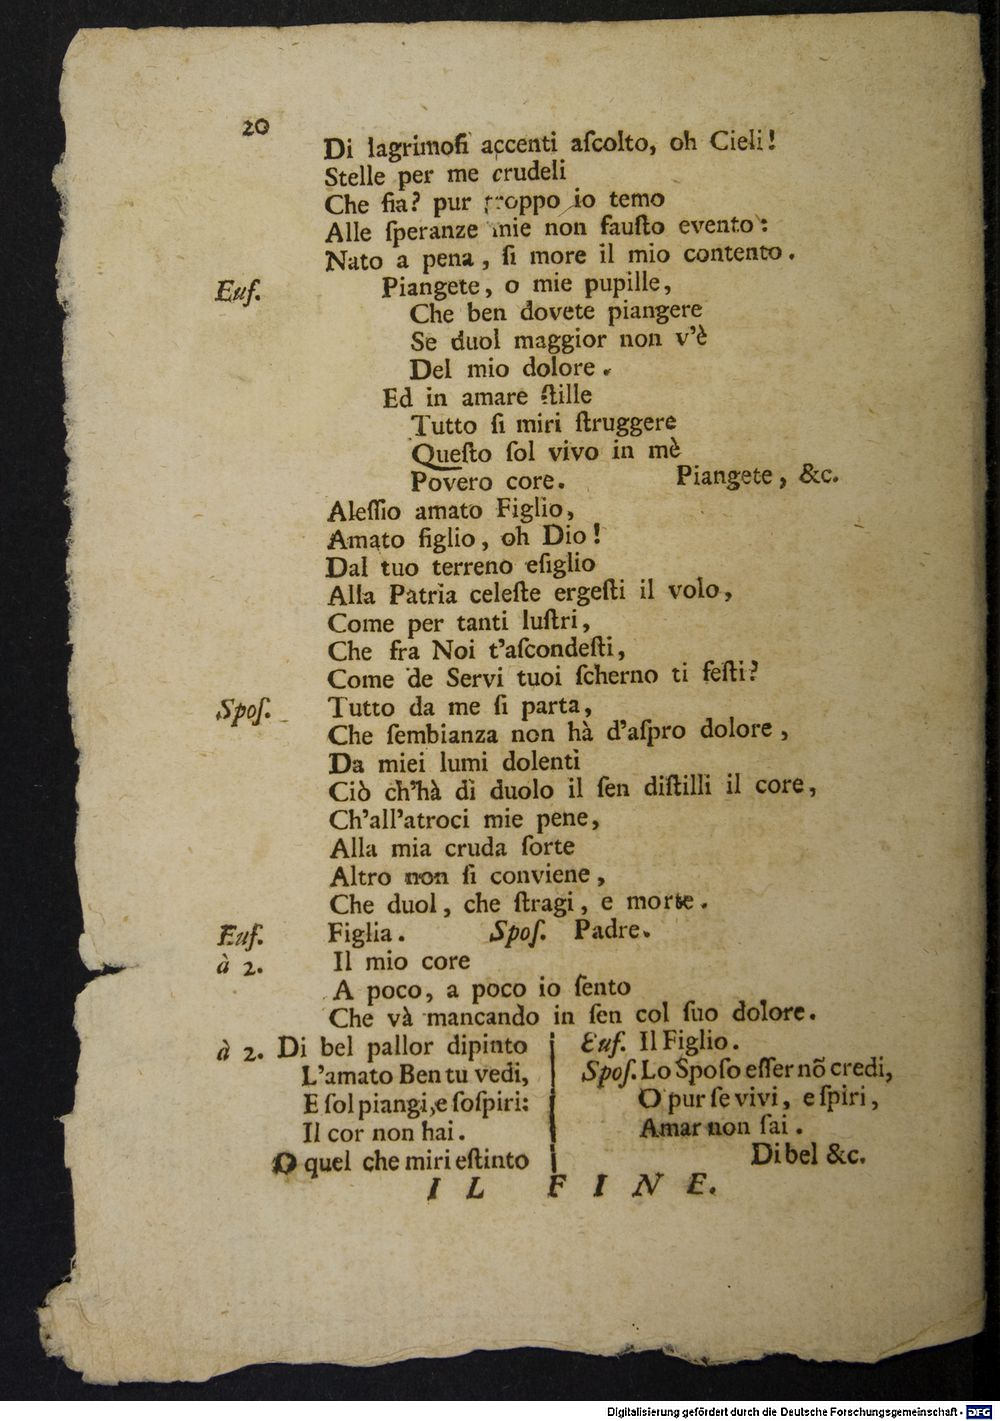 20
Di lagrimoſi accenti aſcolto, oh Cieli!
Stelle per me crudeli
Che ſia? pur troppo io temo
Alle ſperanze mie non fauſto evento:
Nato a pena, ſi more il mio contento.
Euſ. Piangete, o mie pupille,
Che ben dovete piangere
Se duol maggior non v'è
Del mio dolore.
Ed in amare ſtille
Tutto ſi miri ſtruggere
Queſto ſol vivo in mè
Povero core. Piangete, &c.
Aleſſio amato Figlio,
Amato figlio, oh Dio!
Dal tuo terreno eſiglio
Alla Patria celeſte ergeſti il volo,
Come per tanti luſtri,
Che fra Noi t'aſcondeſti,
Come de Servi tuoi ſcherno ti feſti?
Spoſ. Tutto da me ſi parta,
Che ſembianza non hà d'aſpro dolore,
Da miei lumi dolenti
Ciò ch'hà di duolo il ſen diſtilli il core,
Ch'all'atroci mie pene,
Alla mia cruda ſorte
Altro non ſi conviene,
Che duol, che ſtragi, e morte.
Euf. Figlia. Spoſ. Padre.
à 2. Il mio core
A poco, a poco io ſento
Che và mancando in ſen col ſuo dolore.
à 2. Di bel pallor dipinto
L'amato Ben tu vedi,
E ſol piangi, e ſoſpiri:
Il cor non hai.
O quel che miri eſtinto
Euf. Il Figlio.
Spoſ. Lo Spoſo eſſer nõ credi,
O pur ſe vivi, e ſpiri,
Amar non ſai.
Di bel &c.
IL FINE.
Digitalisierung gefördert durch die Deutsche Forschungsgemeinschaft - DFG